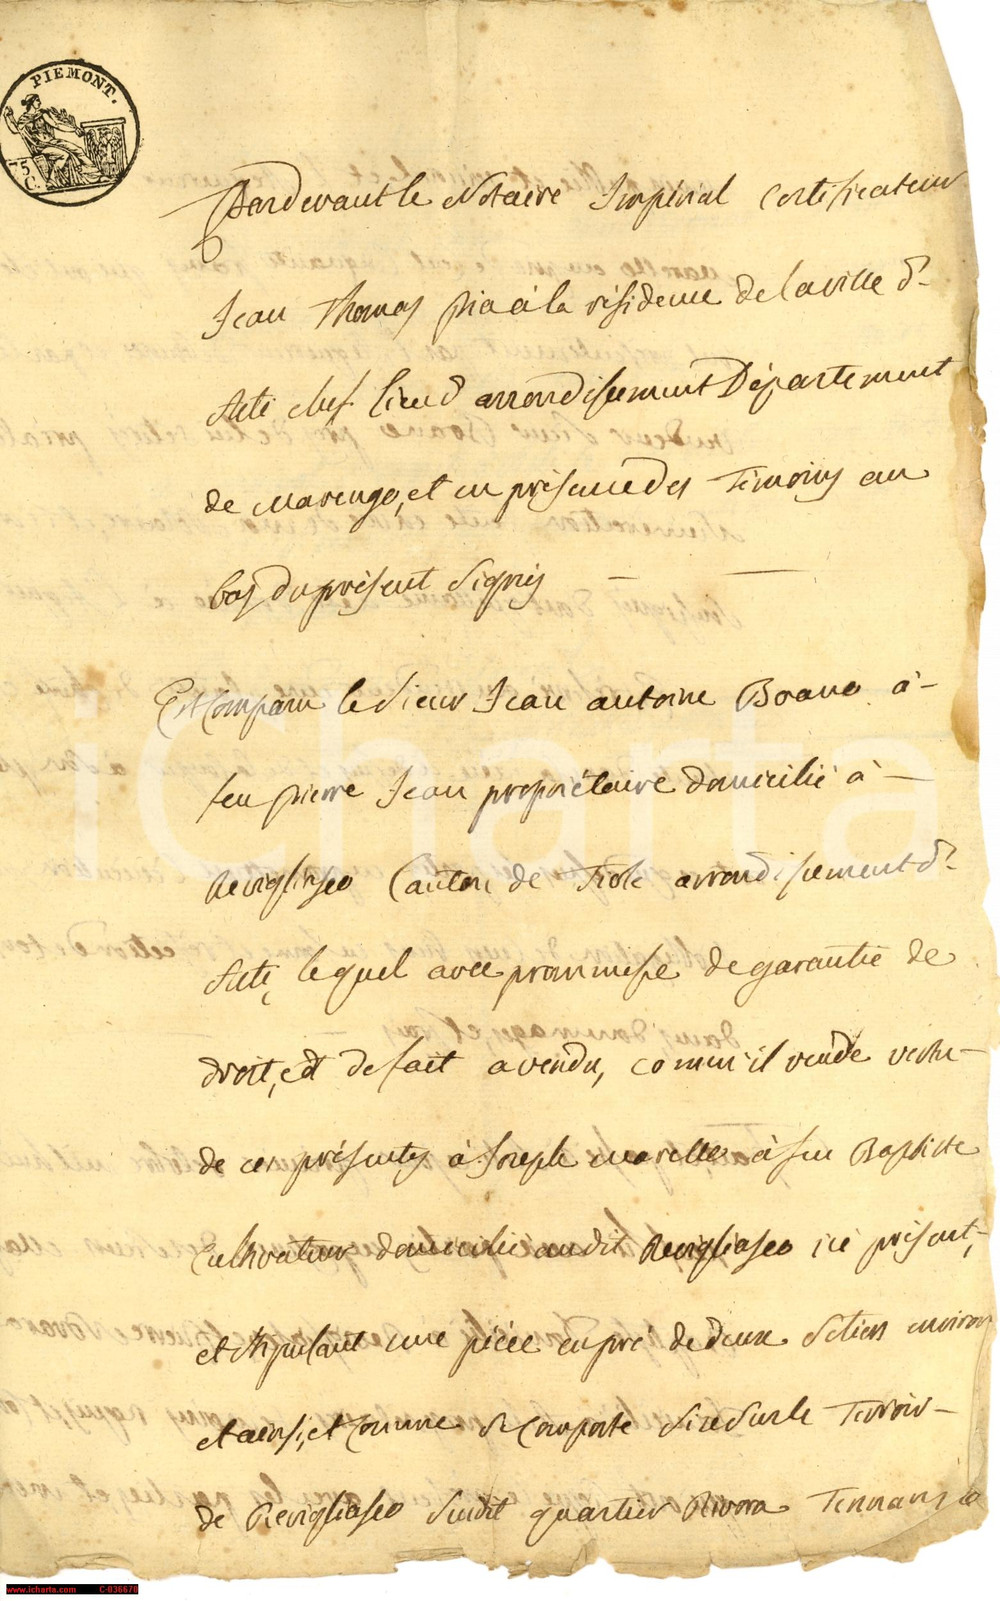 PIEMONT.
75 C.
Pardevant le Notaire Impérial Certificateur
Jean Thomas Pia à la résidence de la ville d'
Asti chef lieu d'arrondissement Département
de Marengo, et en présence des Témoins au
bas du présent signés
Est Comparu le Sieur Jean antoine Boano à
feu pierre Jean propriétaire domicilié à
Revigliasco Canton de Tiole arrondissement d'
Asti, lequel avec prommesse de garantie de
droit, et de fait a vendu, comm'il vende vertu
de ces présentes à Joseph morello à feu Baptiste
Cultivateur domicilié audit Revigliasco ici présent,
et stipulant une pièce en pré de deux setiers environ
et ainsi, et Comme se Comporte sise sur le Terroir
de Revigliasco susdit quartier Rivora Tennans à
iCharta
www.icharta.com C-036670